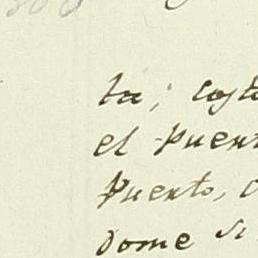 ta; cost
el Puert
Puerto, c
dome si